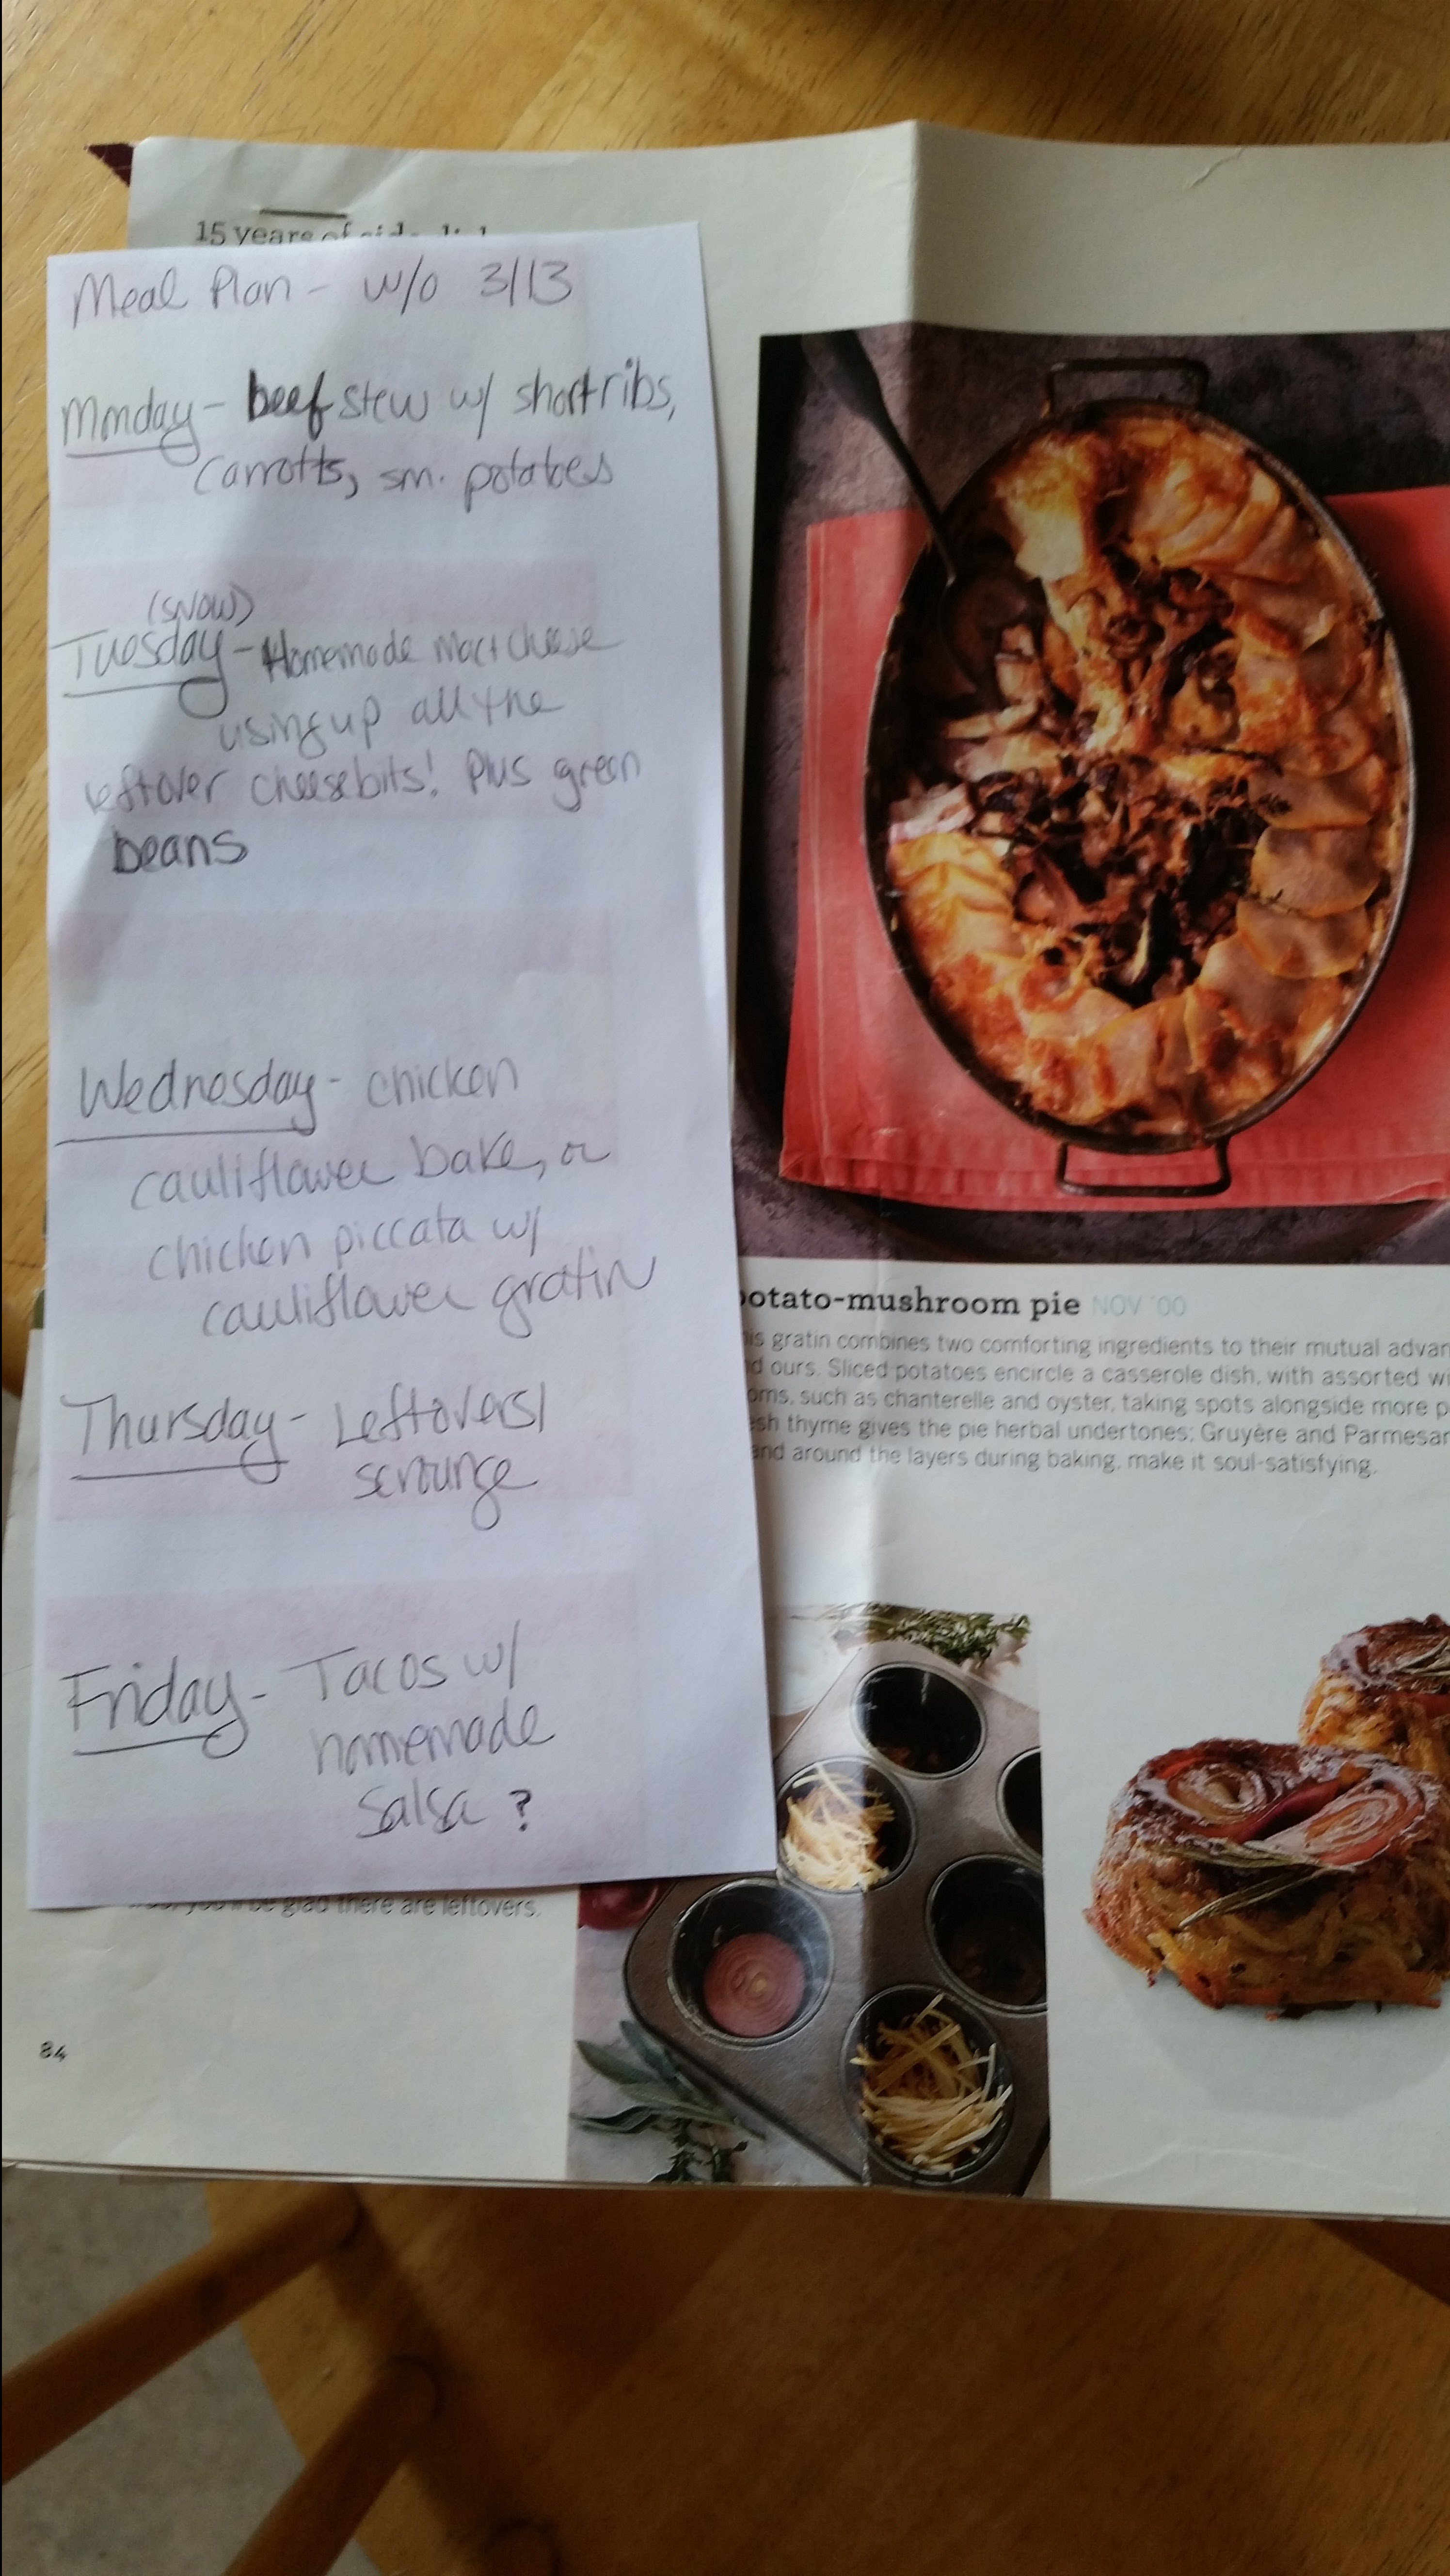 15 years of
Meal Plan - w/o 3/13
Monday - beef stew w/ shortribs,
carrotts, sm. potatoes
(snow)
Tuesday - Homemade Mac+cheese
using up all the
leftover cheesebits! Plus green
beans
Wednesday - chicken
cauliflower bake, or
chicken piccata w/
cauliflower gratin
Thursday - Leftovers/
scrounge
Friday - Tacos w/
homemade
salsa ?
you'll be glad there are leftovers.
84
potato-mushroom pie NOV '00
his gratin combines two comforting ingredients to their mutual advan
d ours. Sliced potatoes encircle a casserole dish, with assorted wi
oms, such as chanterelle and oyster, taking spots alongside more p
esh thyme gives the pie herbal undertones; Gruyère and Parmesan
and around the layers during baking, make it soul-satisfying.